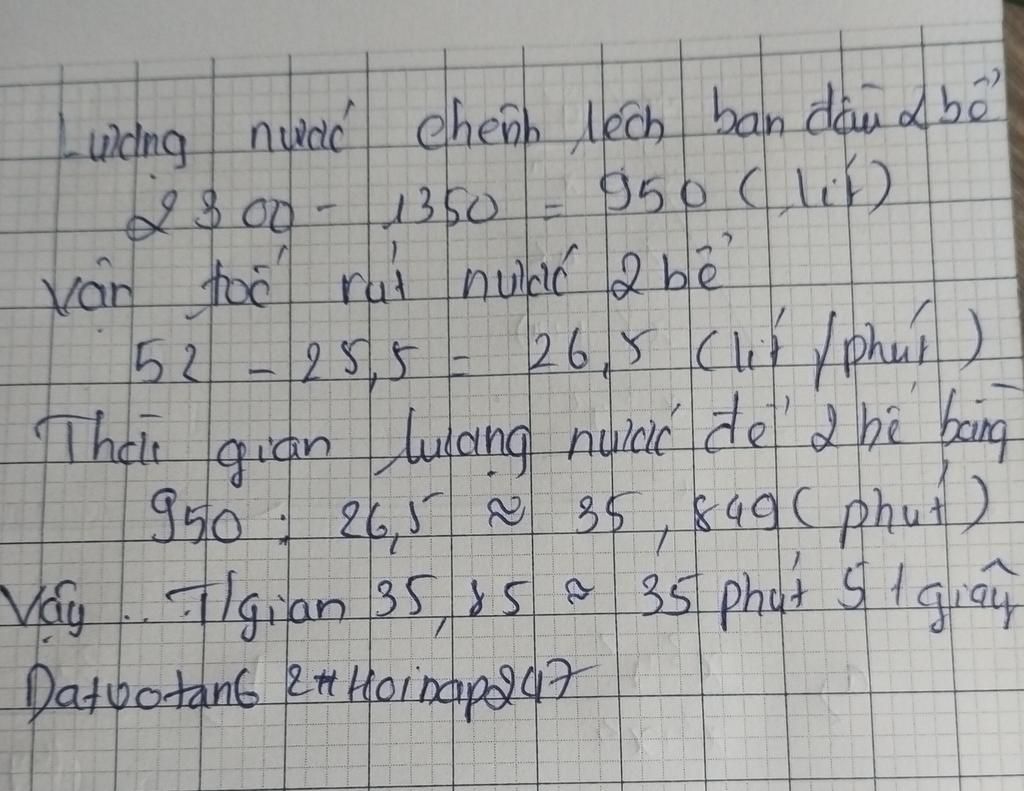 Lượng nước chênh lệch ban đầu 2 bể
2300 - 1350 = 950 (lít)
Vận tốc rút nước 2 bể
52 - 25,5 = 26,5 (lít/phút)
Thời gian lượng nước để 2 bể bằng
950 : 26,5 ≈ 35,849 (phút)
Vậy .. T/gian 35,85 ≈ 35 phút 51 giây
Datvotan6 2# Hoidap247